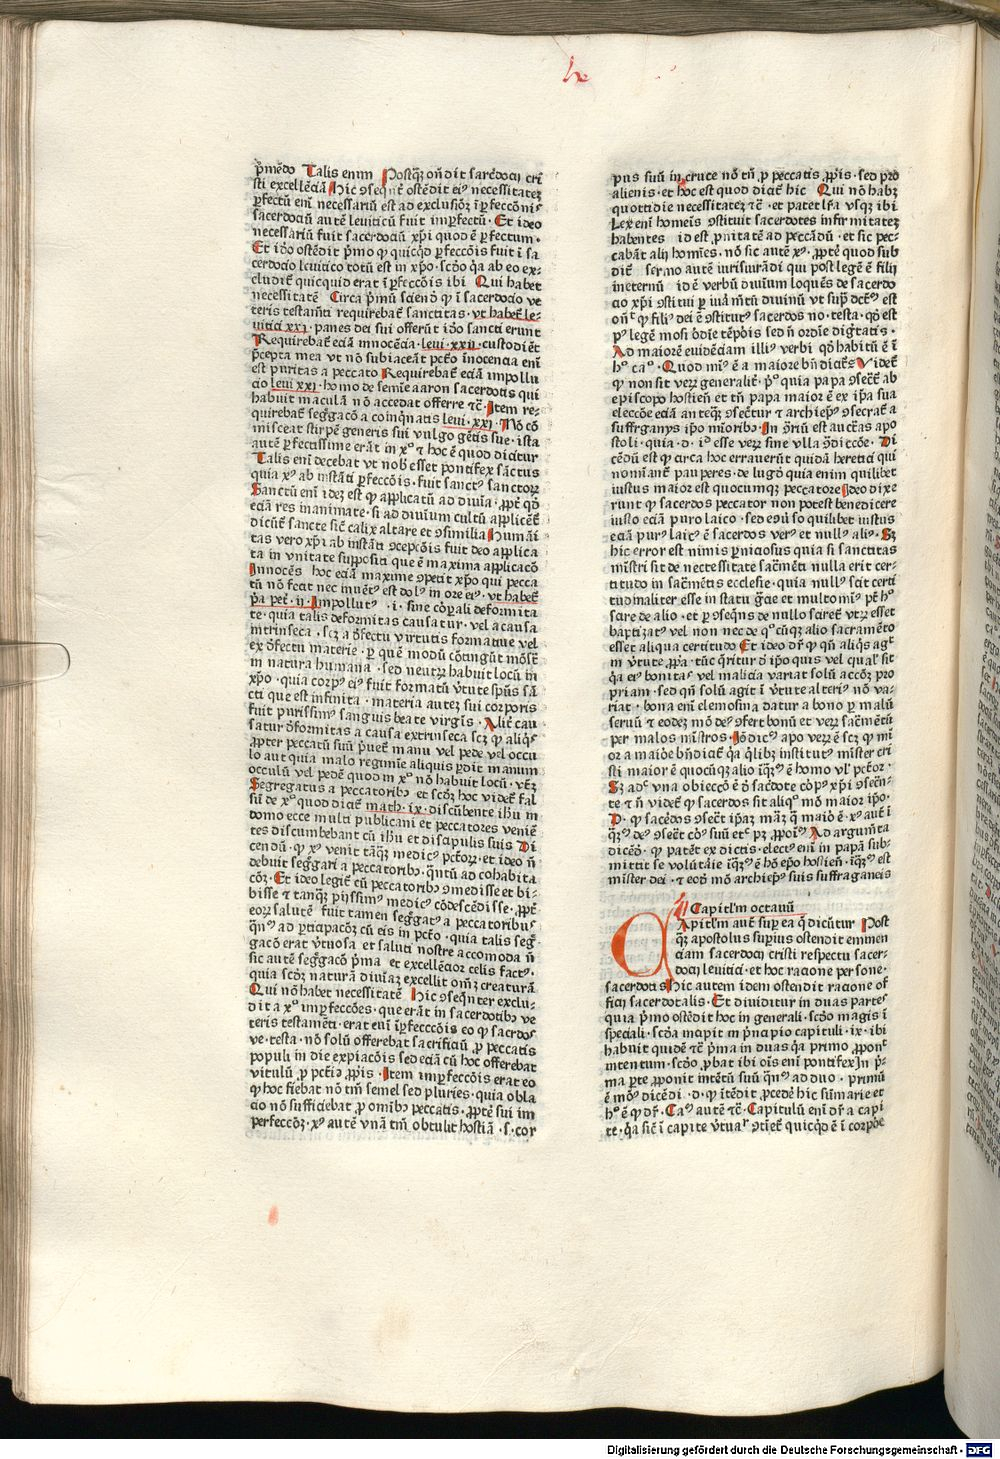 lx
p̄mēdo Talis enim Postq̄ȝ on̄dit sacēdocij cri
sti excellēciā Hic ꝯseqn̄t̄ ostēdit eiꝰ necessitatez
ꝑfectū enī necessariū est ad exclusiōȝ īꝑfeccōnis
sacerdociū autē leuiticū fuit imꝑfectū · Et ideo
necessariū fuit sacerdociū xp̄i quod ē ꝑfectum ·
Et iō ostēdit p̄mo ꝙ quicq̄d ꝑfeccōis fuit ī sa
cerdocio leuitico totū est in xp̄o · scd̄o q̄a ab eo ex-
cludit̄ quicquid erat īꝑfeccōis ibi Qui habet
necessitatē Circa p̄mū sciend̄ ꝙ ī sacerdocio ve
teris testam̄ti requirebat̄ sanctitas · vt habet̄ le-
uitici xxj · panes dei sui offerūt iō sancti erunt
Requirebat̄ eciā innocēcia · leui · xxij · custodiēt
p̄cepta mea vt nō subiaceāt pctō · īnocencia enī
est puritas a peccato Requirebat̄ eciā impollu
cio leui xxj · homo de semīe aaron sacerdotis qui
habuit maculā nō accedat offerre ⁊c̄ · Item re-
quirebat̄ seg̃gacō a coinq̄natis leui · xxj · Nō cō
misceat stirpē generis sui vulgo gētis sue · ista
autē ꝑfectissime erāt in xº ⁊ hoc ē quod dicitur
Talis enī decebat vt nob̄ esset pontifex sāctus
quia xꝰ ab instāti ꝯcepcōis fuit sanctꝰ sanctorȝ
Sanctū enī idez est ꝙ applicatū ad diuīa · ꝓpt̄ qd̄
eciā res inanimate · si ad diuīum cultū applicēt̄
dicūt̄ sancte sic̄ calix altare et ꝯsimilia Humāi
tas vero xp̄i ab instāti ꝯcepcōis fuit deo applica
ta in vnitate suppositi que ē maxima applicacō
Innocēs hoc eciā maxime ꝯpetit xp̄o qui pecca
tū nō fecit nec inuētꝰ est dolꝰ in ore eiꝰ · vt habet̄
p̄a pet̄ · ij · Impollutꝰ · i · sine corꝑali deformita
te · quia talis deformitas causatur · vel a causa
intrinseca · scȝ a defectu virtutis formatiue vel
ex defectu materie · ꝑ quē modū cōtingūt mōst̄
in natura humana · sed neutrȝ habuit locū in
xp̄o · quia corpꝰ eiꝰ fuit formatū v̄tute spūs sā
cti que est infinita · materia autez sui corporis
fuit purissimꝰ sanguis beate virgīs · Alit̄ cau
satur deformitas a causa extrinseca scȝ ꝙ aliqs̄
ꝓpter peccatū suū p̄uet̄ manu vel pede vel occu
lo aut quia malo regimīe aliquis ꝑdit manum
occulū vel pedē quod in xº nō habuit locū · v̄tȝ
Segregatus a peccatoribꝰ et scōȝ hoc videt̄ fal
sū de xº quod dicat̄ math · ix · discūbente ih̄u in
domo ecce multi publicani et peccatores veniē
tes discumbebant cū ih̄u et discipulis suis Di
cendū · ꝙ xꝰ venit tāq̄ȝ medicꝰ pctōrȝ · et ideo n̄
debuit seg̃gari a peccatoribȝ · qn̄tū ad cohabita
cōȝ · Et ideo legit̄ cū peccatoribꝰ ꝯmedisse et bi-
bisse ⁊ tanq̄ȝ pijssimꝰ medicꝰ cōdescēdisse · ꝓpt̄
eorȝ salutē fuit tamen seg̃gatꝰ a peccatoribus
qn̄º ad ꝑticipacōȝ cū eis in pctō · quia talis seg̃
gacō erat v̄tuosa et saluti nostre accomoda n̄
sic autē seg̃gacō p̄ma et excellēcior celis factꝰ ·
quia scōȝ naturā diuīaȝ excellit om̄ȝ creaturā
Qui nō habet necessitatē Hic ꝯseqn̄ter exclu-
dit a xº imꝑfeccōes · que erāt in sacerdotibꝰ ve
teris testamēti · erat enī īꝑfecccōis eo ꝙ sacrdoſ
ve · testa · nō solū offerebat sacrificiū ꝓ peccatis
populi in die expiacōis sed eciā cū hoc offerebat
vitulū ꝓ pctō ꝓpis · Item imꝑfeccōis erat eo
ꝙ hoc fiebat nō tm̄ semel sed pluries · quia obla
cio nō sufficiebat ꝓ omībꝰ peccatis · ꝓpt̄ sui im
perfeccōȝ · xꝰ autē vnā tm̄ obtulit hostiā · s · cor
pus suū in cruce nō tn̄ ꝓ peccatis ꝓpis · sed pro
alienis · et hoc est quod dicat̄ hic Qui nō habȝ
quottidie necessitatez ⁊c̄ · et patet lr̄a vsqȝ ibi
Lex enī homeīs ꝯstituit sacerdotes infirmitatez
habentes id est ꝓnitatē ad peccādū · et sic pec-
cabāt alij homīes · nō sic autē xꝰ · ꝓpt̄ quod sub
dit̄ sermo autē iurisiurādi qui post legē ē filij
ineternū id ē verbū diuīum loquēs de sacerdo
cio xp̄i ꝯstitui ꝑ iuram̄tū diuinū vt sup̄ dcm̄ est
on̄t̄ ꝙ filiꝰ dei ē ꝯstitutꝰ sacerdos no · testa · qd̄ est
pꝰ legē mosi ordīe tēpōis sed n̄ ordīe dig̃tatis ·
Ad maiorē euidēciam illiꝰ verbi qd̄ habitū ē ī
hº caº · Quod minꝰ ē a maiore bn̄dicat̄ Videt̄
ꝙ non sit verȝ generalit̄ · pº quia papa ꝯsecrat̄ ab
episcopo hostieñ et tn̄ papa maior ē ex ip̄a sua
eleccōe eciā anteq̄ȝ ꝯsecr̄tur ⁊ archiep̄s ꝯsecrat̄ a
suffrganys ip̄o mīoribꝰ · In ꝯr̄iū est auct̄as apo
stoli · quia · d · iº esse verȝ sine vlla ꝯdiccōe · Di
cēdū est ꝙ circa hoc errauerūt quidā heretici qui
nomīant̄ pauperes · de lugdō quia enim quilibet
iustus maior est quocumqȝ peccatore Ideo dixe
runt ꝙ sacerdos peccator non potest benedicere
iusto eciā puro laico · sed eꝯuerso quilibet iustus
eciā purꝰ laicꝰ ē sacerdos verꝰ et nullꝰ aliꝰ · Sȝ
hic error est nimis ꝑniciosus quia si sanctitas
mīstri sit de neccessitate sac̄mēti nulla erit cer-
titudo in sac̄mētis ecclesie · quia nullꝰ scit certi
tudinaliter esse in statu gr̄ae et multo minꝰ pt̄ hº
scire de alio · et ꝑ ꝯseqn̄s de nullo sciret̄ vtrȝ esset
baptizatꝰ vel non nec de qºcūqȝ alio sacramēto
esset aliqua certitudo Et ideo dr̄ ꝙ qn̄ aliq̄s ag̃t
in v̄tute ꝓp̄a · tūc q̄ritur de ip̄o quis vel qualꝰ sit
q̄a eiꝰ bonitas vel malicia variat solū accōȝ pro
priam · sed qn̄ solū agit ī v̄tute alteriꝰ nō va-
riat · bona enī elemosina datur a bono ꝑ malū
seruū ⁊ eodez mō deꝰ ꝯfert bonū et verȝ sacm̄ētū
per malos mīstros · Iō dictꝰ apo verȝ ē scȝ ꝙ mī
or a maiōe bn̄dicat̄ q̄a q̄libȝ institutꝰ mīster cri
sti maior ē quocūqȝ alio īq̄ꝫ ē homo vl̄ pctōr ·
Sȝ adᶜ vna obieccō ē de sac̄dote corpꝰ xp̄i ꝯsecn̄-
te ⁊ n̄ videt̄ ꝙ sacerdos sit aliqº mō maior ip̄o ·
D · ꝙ sacēdos ꝯsecr̄t īp̄aȝ māȝ q̄ maiō ē · xꝰ aut̄ ī
q̄ꝫ deꝰ ꝯsecr̄t cōrꝰ suū etᶜ pȝ ꝓpoīꝰ Ad argum̄ta
dicēd̄ · ꝙ patēt ex dictis · electꝰ enī in papā sub-
mittit se volūtāie īq̄ꝫ ē hō ep̄o hostieñ · īq̄ꝫ est
mīster dei · ⁊ eod̄ mō archiep̄s suis suffraganeis
Capitl̄m octauū
Apitl̄m aut̄ sup̄ ea q̄ dicūtur Post
q̄ȝ apostolus suꝑius ostendit eminen
ciam sacerdocij cristi respectu sacer-
docij leuitici · et hoc racione persone ·
sacerdotis Hic autem idem ostendit racione of
ficij sacerdotalis · Et diuiditur in duas partes
quia p̄mo ostēdit hoc in generali · scd̄o magis ī
speciali · scd̄a īncipit in p̄ncipio capituli · ix · ibi
habuit quidē ⁊c̄ p̄ma in duas q̄a primo ꝓponᵗ
intentum · scd̄o ꝓbat ibi oīs enī pontifex In p̄-
ma ꝑte ꝓponit intētū suū qn̄º ad duo · primū
ē modꝰ dicēdi · d · ꝙ ītēdit ꝓcedē hic sūmarie et
hº ē ꝙ dr̄ · Caᵐ autē ⁊c̄ · Capitulū enī dr̄ a capi
te · q̄a sic̄ ī capite v̄tuaʳ ꝯtīet̄ quicq̄d ē ī corpōe
Digitalisierung gefördert durch die Deutsche Forschungsgemeinschaft - DFG